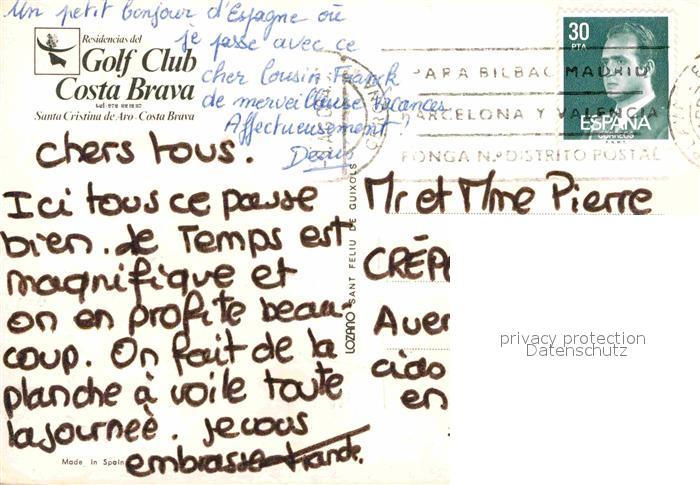 Un petit bonjour d'Espagne où
je passe avec ce
cher cousin Franck
de merveilleuse vacances
Affectueusement !
Denis
Residencias del
Golf Club
Costa Brava
Santa Cristina de Aro - Costa Brava
chers tous.
Ici tous ce passe
bien. le Temps est
magnifique et
on en profite beau-
coup. On fait de la
planche à voile toute
la journeè. je vous
embrasse
Made in Spain
LOZANO SANT FELIU DE GUIXOLS
30
PTA
ESPAÑA
PARA BILBAO MADRID
BARCELONA Y VALENCIA
PONGA N.º DISTRITO POSTAL
Mr et Mme Pierre
CRÉP
Aven
cido
en
privacy protection
Datenschutz